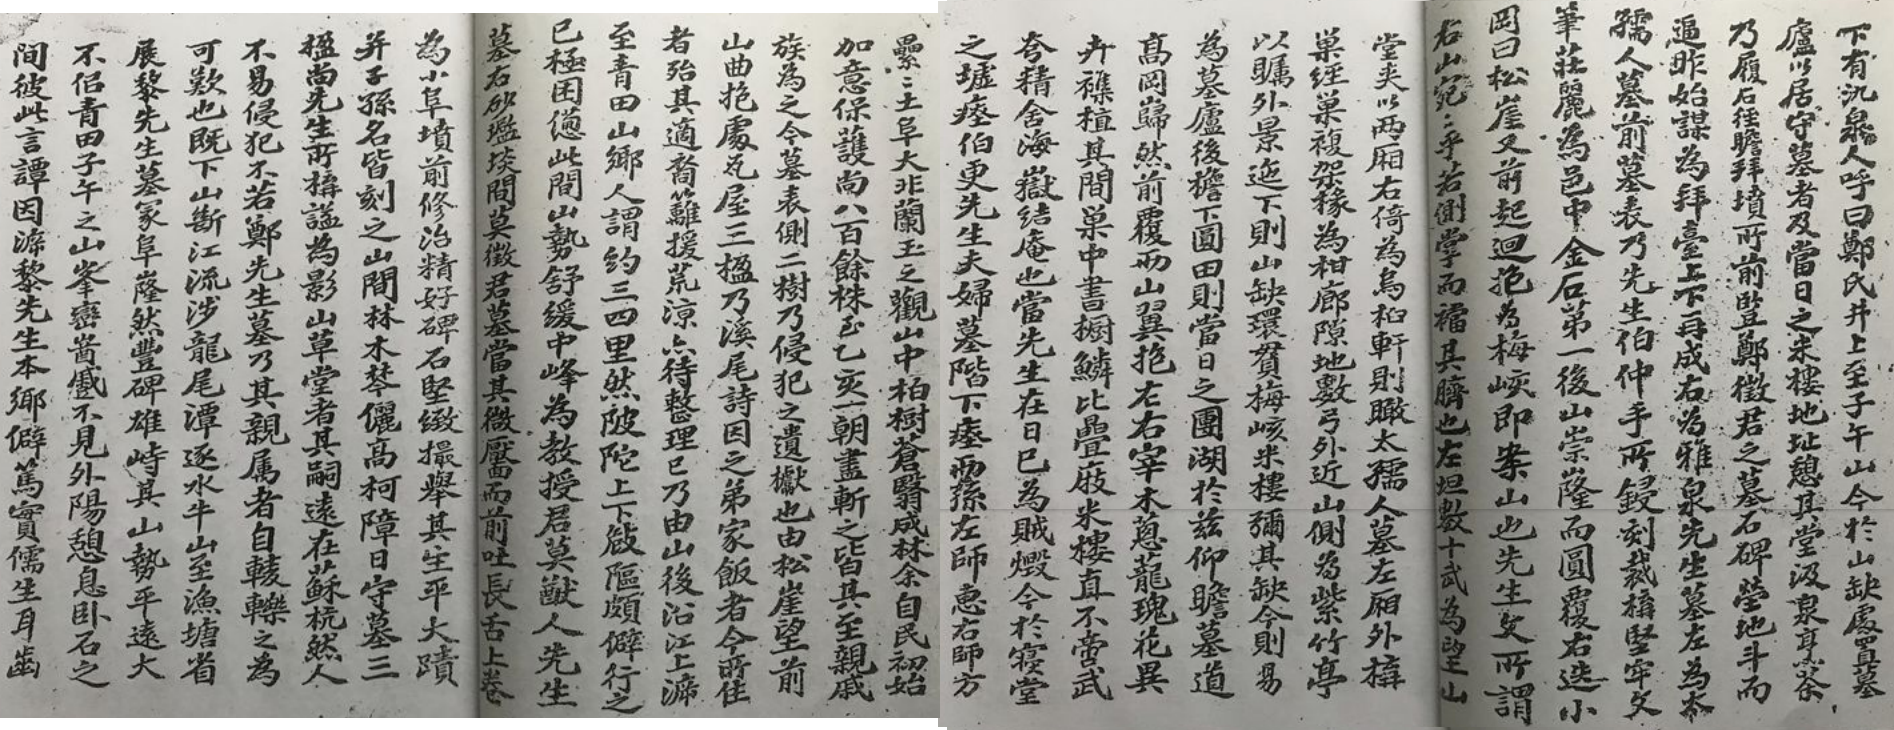 下有氿泉人呼曰鄭氏井上至子午山今於山缺處置墓
廬以居守墓者及當日之米樓地址憩其堂汲泉烹茶
乃履石徃瞻拜墳所前豎鄭徵君之墓石碑塋地斗而
逼昨始謀為拜臺上下再成右為雅泉先生墓左為太
孺人墓前墓表乃先生伯仲手所鋟刻裁橅堅牢文
筆莊麗為邑中金石第一後山崇隆而圓覆右迤小
岡曰松崖又前起迴抱為梅峽即案山也先生文所謂
右山宛宛乎若側掌而襠其臍也左坦數十武為望山
堂夾以兩厢右倚為烏桕軒則瞰太孺人墓左厢外搆
巢經巢複架椽為柑廊隙地數弓外近山側為紫竹亭
以矚外景迤下則山缺環貫梅峐米樓彌其缺今則易
為墓廬後檐下圓田則當日之團湖於兹仰瞻墓道
高岡巋然前覆兩山翼抱左右宰木蔥蘢瑰花異
卉襍植其間巢中書櫥鱗比疊庪米樓直不啻武
夸精舍海嶽結庵也當先生在日已為賊燬今於寝堂
之墟瘞伯更先生夫婦墓階下瘞兩孫左師惠右師方
纍〻土阜大非蘭玉之觀山中柏樹蒼翳成林余自民初始
加意保護尚八百餘株至乙亥一朝盡斬之皆其至親戚
族為之今墓表側二樹乃侵犯之遺櫱也由松崖望前
山曲抱處瓦屋三楹乃溪尾詩因之弟家飯者今所住
者殆其適裔籬援荒涼亦待整理已乃由山後沿江上游
至青田山鄉人謂約三四里然陂陀上下敧嶇頗僻行之
已極困憊此間山勢舒緩中峰為教授君莫猷人先生
墓右砂䃭埮間莫徵君墓當其微靨而前吐長舌上卷
為小阜墳前修治精好碑石堅緻撮舉其生平大蹟
并子孫名皆刻之山間林木棽儷高柯障日守墓三
楹尚先生所搆謚為影山草堂者其嗣遠在蘇杭然人
不易侵犯不若鄭先生墓乃其親属者自轅轢之為
可歎也既下山斷江流涉龍尾潭逐水牛山至漁塘省
展黎先生墓冢阜隆然豐碑雄峙其山勢平遠大
不侣青田子午之山峯巒嵤巇不見外陽憩息卧石之
間彼此言譚因游黎先生本鄉僻篤實儒生耳齒